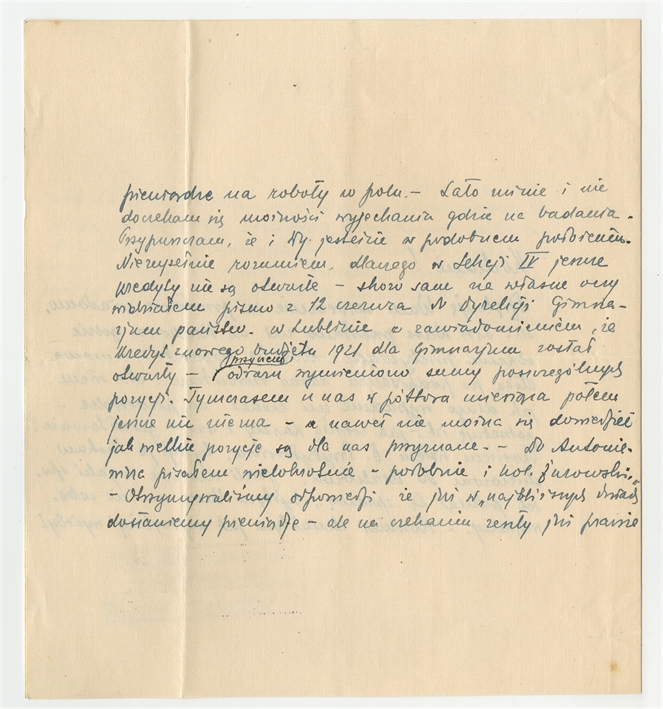 pieniądze na roboty w polu. – Lato minie i nie
doczekam się możności wyjechania gdzie na badania.
Przypuszczam, że i Wy jesteście w podobnem położeniu.
Niezupełnie rozumiem, dlaczego w Sekcji IV jeszcze
kredyty nie są otwarte – skoro sam na własne oczy
widziałem pismo z 12 czerwca w Dyrekcji Gimna-
zjum państw. w Lublinie z zawiadomieniem, że
kredyt z nowego budżetu 1921 dla Gimnazjum został
otwarty – przyczem odrazu wymieniono sumy poszczególnych
pozycji. Tymczasem u nas w półtora miesiąca potem
jeszcze nic niema – a nawet nie można się dowiedzieć
jak wielkie pozycje są dla nas przyznane. – Do Antonie-
wicza pisałem wielokrotnie – podobnie i kol. Żurowski.
– Otrzymywaliśmy odpowiedzi że już w „najbliższych dniach
dostaniemy pieniądze – ale na czekaniu zeszły już prawie